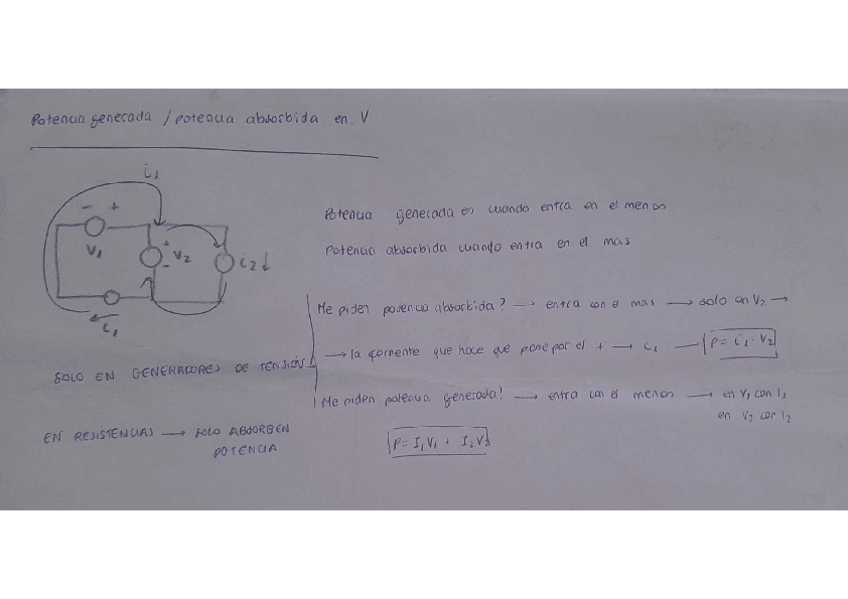 Potencia generada / potencia absorbida en V
i₁
- +
V₁
+
-
V₂
i₂↓
i₁
Potencia generada es cuando entra en el menos
Potencia absorbida cuando entra en el mas
Me piden potencia absorbida? → entra con el mas → solo en V₂ →
→ la corriente que hace que pone por el + → i₁ → P = i₁ · V₂
SOLO EN GENERADORES DE TENSIÓN!
¡Me piden potencia generada! → entra con el menos → en V₁ con I₁
en V₂ con I₂
EN RESISTENCIAS → SOLO ABSORBEN
POTENCIA
P = I₁V₁ + I₂V₂